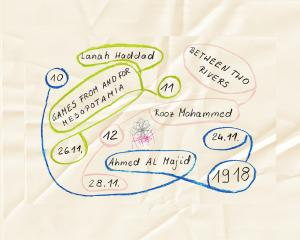 Lanah Haddad
BETWEEN TWO
RIVERS
10
11
GAMES FROM AND FOR
MESOPOTAMIA
Rooz Mohammed
12
24.11.
26.11.
Ahmed Al Majid
1918
28.11.